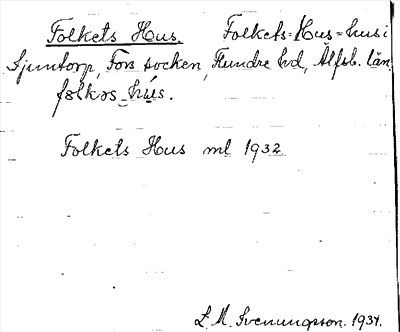 Folkets Hus. Folkets-Hus=hus i
Sjuntorp, Fors socken, Flundre hd, Älfsb. län.
fɷlkəs_hús.
Folkets Hus ml 1932
L. M. Svenungsson. 1934.